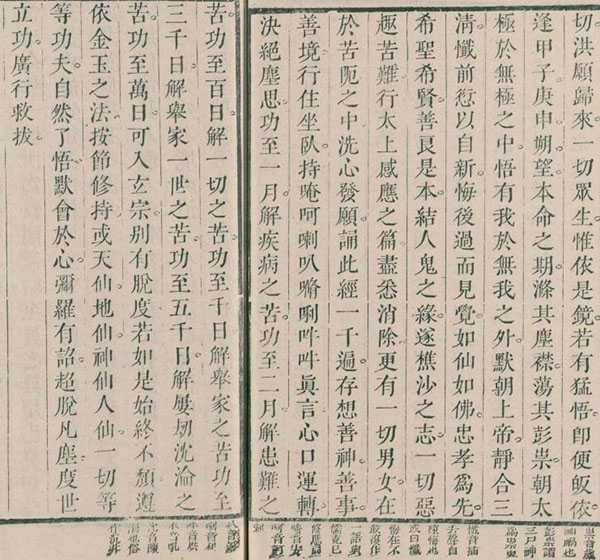 切洪願歸來一切眾生惟依是鏡若有猛悟卽便皈依
逢甲子庚申朔望本命之期滌其塵襟蕩其彭祟朝太
極於無極之中悟有我於無我之外默朝上帝靜合三
淸懺前愆以自新悔後過而見覺如仙如佛忠孝爲先
希聖希賢善良是本結人鬼之緣遂樵沙之志一切惡
趣苦難行太上感應之篇盡悉消除更有一切男女在
於苦阨之中洗心發願誦此經一千遍存想善神善事
善境行住坐臥持唵呵喇叭𠿝唎吽吽眞言心口運轉
決絕塵思功至一月解疾病之苦功至二月解患難之
苦功至百日解一切之苦功至千日解舉家之苦功至
三千日解舉家一世之苦功至五千日解屢劫沈淪之
苦功至萬日可入玄宗别有脫度若如是始終不頹遵
依金玉之法按節修持或天仙地仙神仙人仙一切等
等功夫自然了悟默會於心彌羅有詔超脫凡塵度世
立功廣行救拔